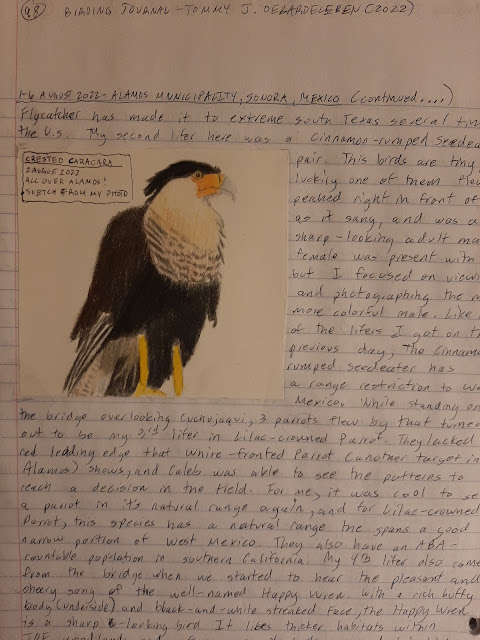 98 BIRDING JOURNAL - TOMMY J. DEBARDELEBEN (2022)
1-6 AUGUST 2022 - ALAMOS MUNICIPALITY, SONORA, MEXICO (continued....)
Flycatcher has made it to extreme south Texas several
the U.S. My second lifer here was a Cinnamon-rumped
pair. This birds are tiny,
lucky one of them
perched right in front of
as it sang, and was a
sharp-looking adult
female was present with
but I focused on
and photographing the
more colorful male. Like
of the lifers I got on
previous day, The
rumped seedeater has
a range restriction to
Mexico. While standing on
CRESTED CARACARA
2 AUGUST 2022
ALL OVER ALAMOS!
SKETCH FROM MY PHOTO
the bridge overlooking Cuchujaqui, 3 parrots flew by that turned
out to be my 3rd lifer in Lilac-crowned Parrot. They lacked
red leading edge that White-fronted Parrot (another target in
Alamos) shows, and Caleb was able to see the patterns to
reach a decision in the field. For me, it was cool to
a parrot in its natural range again, and for Lilac-crowned
Parrot, this species has a natural range the spans a good
narrow portion of West Mexico. They also have an ABA-
countable population in southern California. My 4th lifer also
from the bridge when we started to hear the pleasant and
cheery song of the well-named Happy Wren. With a rich buffy
body (underside) and black-and-white streaked face, the Happy Wren
is a sharp-looking bird. It likes thicker habitats within